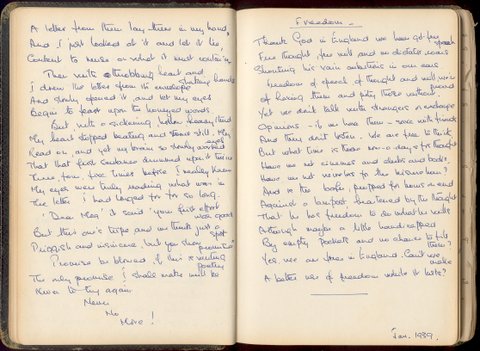 A letter from them lay there in my hand,
And I just looked at it and let it lie,
Content to muse on what it must contain.
Then with a throbbing heart and shaking hands
I drew the letter from its envelope
And slowly opened it, and let my eyes
Begin to feast upon the longed words
But with a sickening hollow heavy thud
My heart stopped beating and stood still. My eyes
Read on, and yet my brain so slowly worked
That that first sentence drummed upon it three
Times, four, five times before I really knew
My eyes were truly reading what was in
The letter I had longed for for so long.
'Dear Miss,' it said 'your first effort was good
But this one's tripe and we think just a spot
Priggish and insincere, but you show promise'
Promise be blowed, if this is writing poetry
The only promise I shall make will be
Never to try again
Never
No
More!
Freedom -
Thank God in England we have got free speech
Free thought, free will and no dictator
Shouting his vain ambitions in our ears
freedom of speech of thought and will, we're proud
of having them and pity those without.
Yet we don't talk with strangers or exchange
Opinions - if we have them - save with friends
And they don't listen. We are free to think
But what time is there now-a-days for thought
Have we not cinemas and clubs and books.
Have we not
And is the
Against a
That he has freedom to do what he wills
Although maybe a little handicapped
By empty Pockets and no chance to fill them?
Yes we are free in England. Can't we make
A better use of freedom while it lasts?
Jan. 1939.